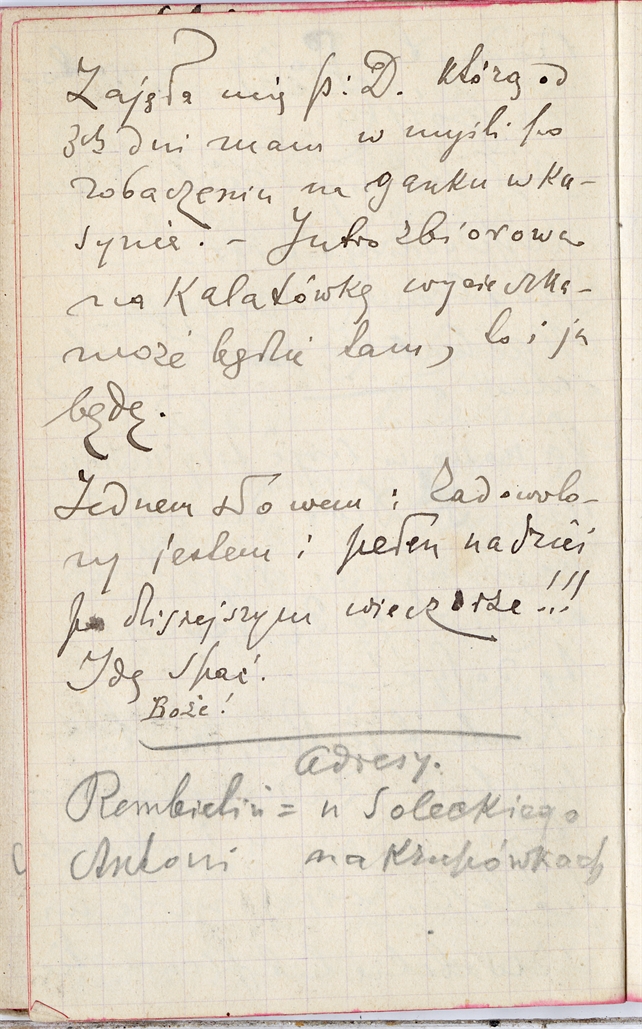 Zajęła mię p: D. którą od
3ch dni mam w myśli po
zobaczeniu na ganku w Ka-
synie. – Jutro zbiorowa
na Kalatówkę wycieczka –
może będzie tam, to i ja
będę.
Jednem słowem: Zadowolo-
ny jestem i pełen nadziei
po dzisiejszym wieczorze!!!
Idę spać.
Boże!
Adresy.
Rembieliń = u Soleckiego
Antoni na Krupówkach